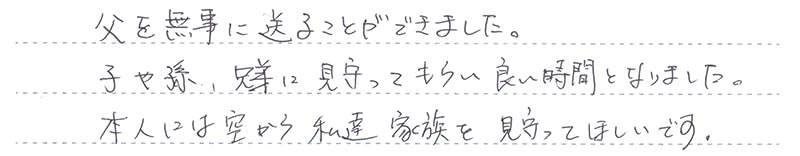 父を無事に送ることができました。
子や孫、兄弟に見守ってもらい良い時間となりました。
本人には空から私達家族を見守ってほしいです。